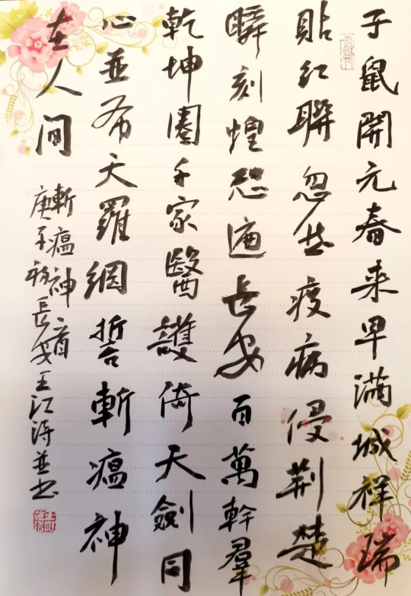 子鼠開元春来早滿城祥瑞
貼紅聯忽然疫病侵荊楚
瞬刻惶恐遍長安百萬幹羣
乾坤圍千家醫護倚天劍同
心並布天羅網誓斬瘟神
在人间
斬瘟神首
庚子秋長安王江涛並书